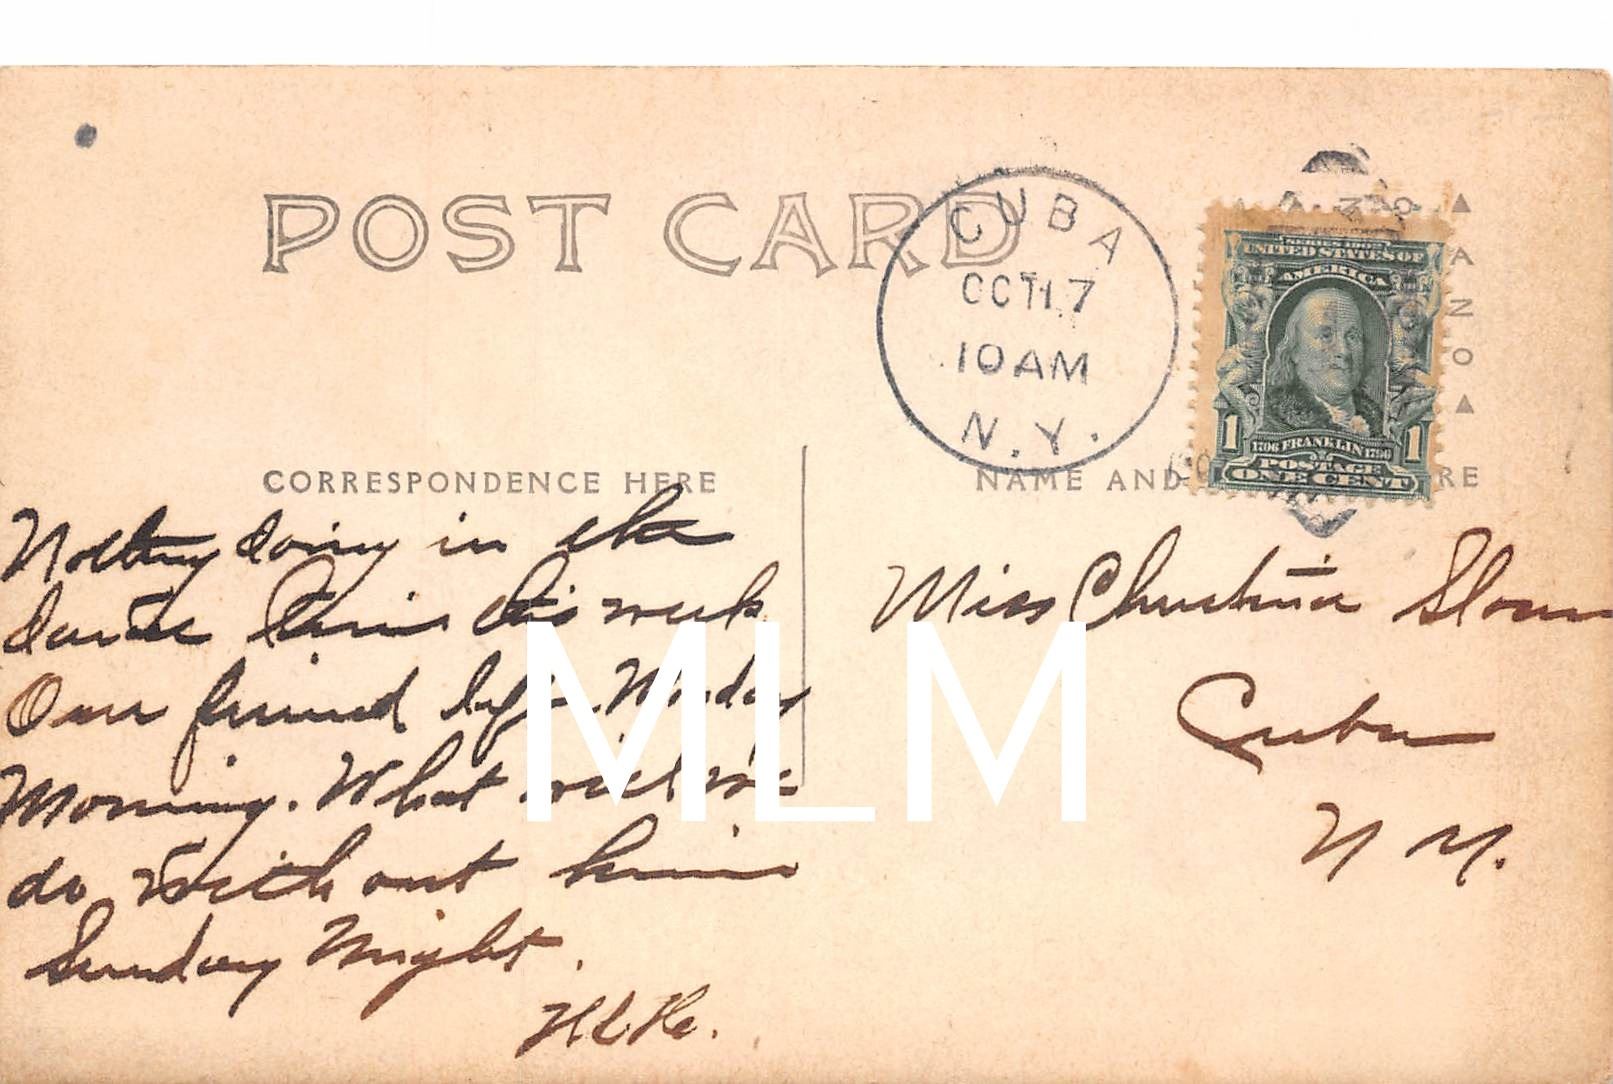 POST CARD
CUBA
OCT 17
10 AM
N.Y.
SERIES 1902
UNITED STATES OF
AMERICA
1 1706 FRANKLIN 1790 1
POSTAGE
ONE CENT
AZO
CORRESPONDENCE HERE
NAME AND RE
Nothing doing in the
dance line this week
Our friend left Monday
Morning. What will we
do without him
Sunday Night.
Miss Christina Sloan
Cuba
N Y.
MLM